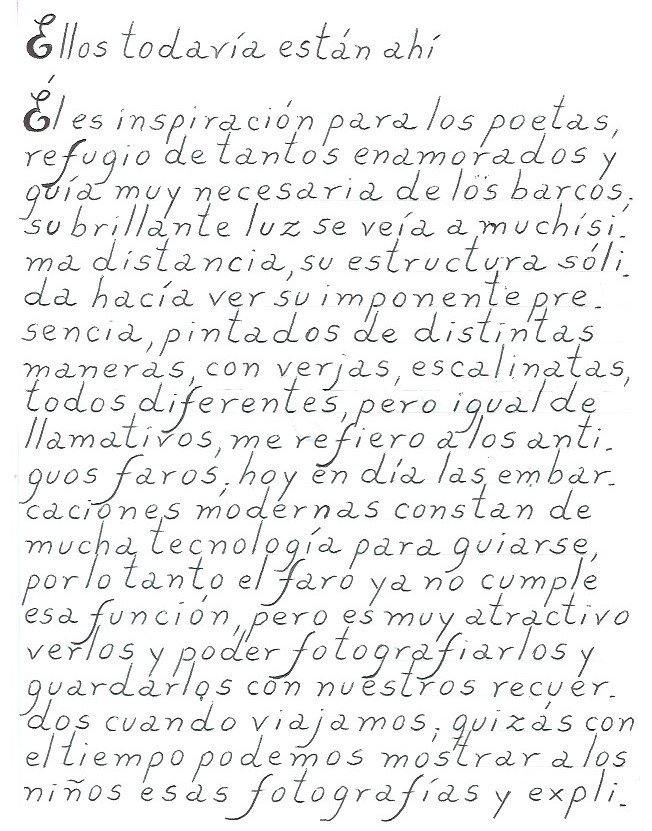 Ellos todavía están ahí
Él es inspiración para los poetas,
refugio de tantos enamorados y
guía muy necesaria de los barcos;
su brillante luz se veía a muchísi-
ma distancia, su estructura sóli-
da hacía ver su imponente pre-
sencia, pintados de distintas
maneras, con verjas, escalinatas,
todos diferentes, pero igual de
llamativos, me refiero a los anti-
guos faros; hoy en día las embar-
caciones modernas constan de
mucha tecnología para guiarse,
por lo tanto el faro ya no cumple
esa función, pero es muy atractivo
verlos y poder fotografiarlos y
guardarlos con nuestros recuer-
dos cuando viajamos; quizás con
el tiempo podemos mostrar a los
niños esas fotografías y expli-